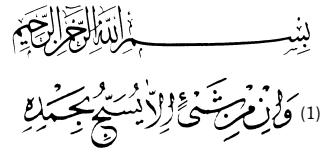 بِسْمِ اللهِ الرَّحْمٰنِ الرَّحِيْمِ
(1) وَاِنْ مِّنْ شَىْءٍ اِلَّا يُسَبِّحُ بِحَمْدِهِ